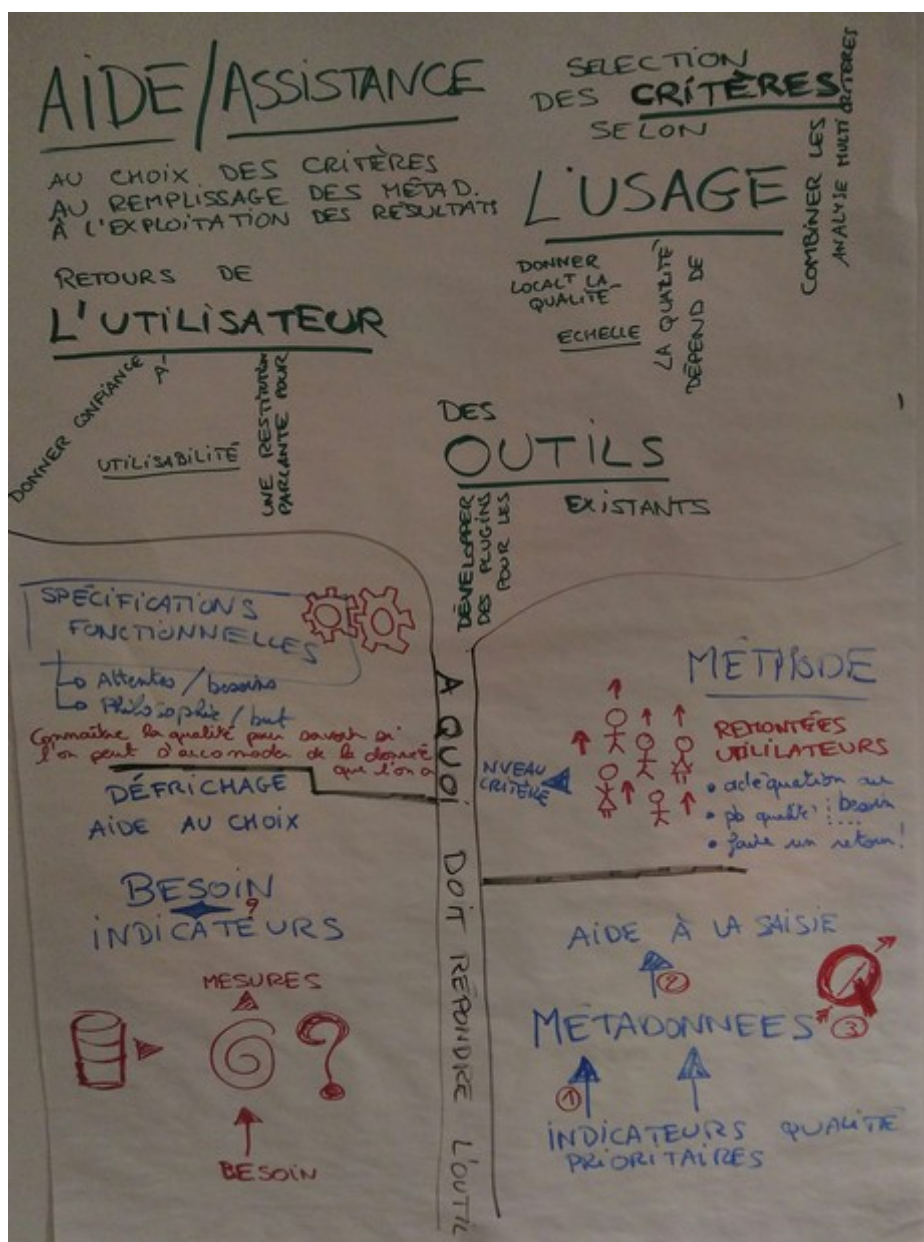 AIDE/ASSISTANCE
AU CHOIX DES CRITÈRES
AU REMPLISSAGE DES MÉTAD.
À L'EXPLOITATION DES RÉSULTATS
RETOURS DE
L'UTILISATEUR
DONNER CONFIANCE
À
UTILISABILITÉ
UNE RESTITUTION
PARLANTE POUR
SELECTION
DES CRITÈRES
SELON
L'USAGE
COMBINER LES
ANALYSE MULTI CRITERES
DONNER
LOCALT LA
QUALITÉ
ECHELLE
LA QUALITÉ
DÉPEND DE
DES
OUTILS
EXISTANTS
DÉVELOPPER
DES PLUGINS
POUR LES
A QUOI DOIT RÉPONDRE L'OUTIL
SPÉCIFICATIONS
FONCTIONNELLES
Attentes / besoins
Philosophie / but
Connaître la qualité pour savoir si
l'on peut s'accomoder de la donnée
que l'on a
DÉFRICHAGE
AIDE AU CHOIX
BESOIN
INDICATEURS
MESURES
?
BESOIN
MÉTHODE
REMONTÉES
UTILILATEURS
• adéquation au
besoin
• pb qualité : ...
• faire un retour!
NIVEAU
CRITÈRE
AIDE À LA SAISIE
②
Q
METADONNEES
③
①
INDICATEURS QUALITÉ
PRIORITAIRES